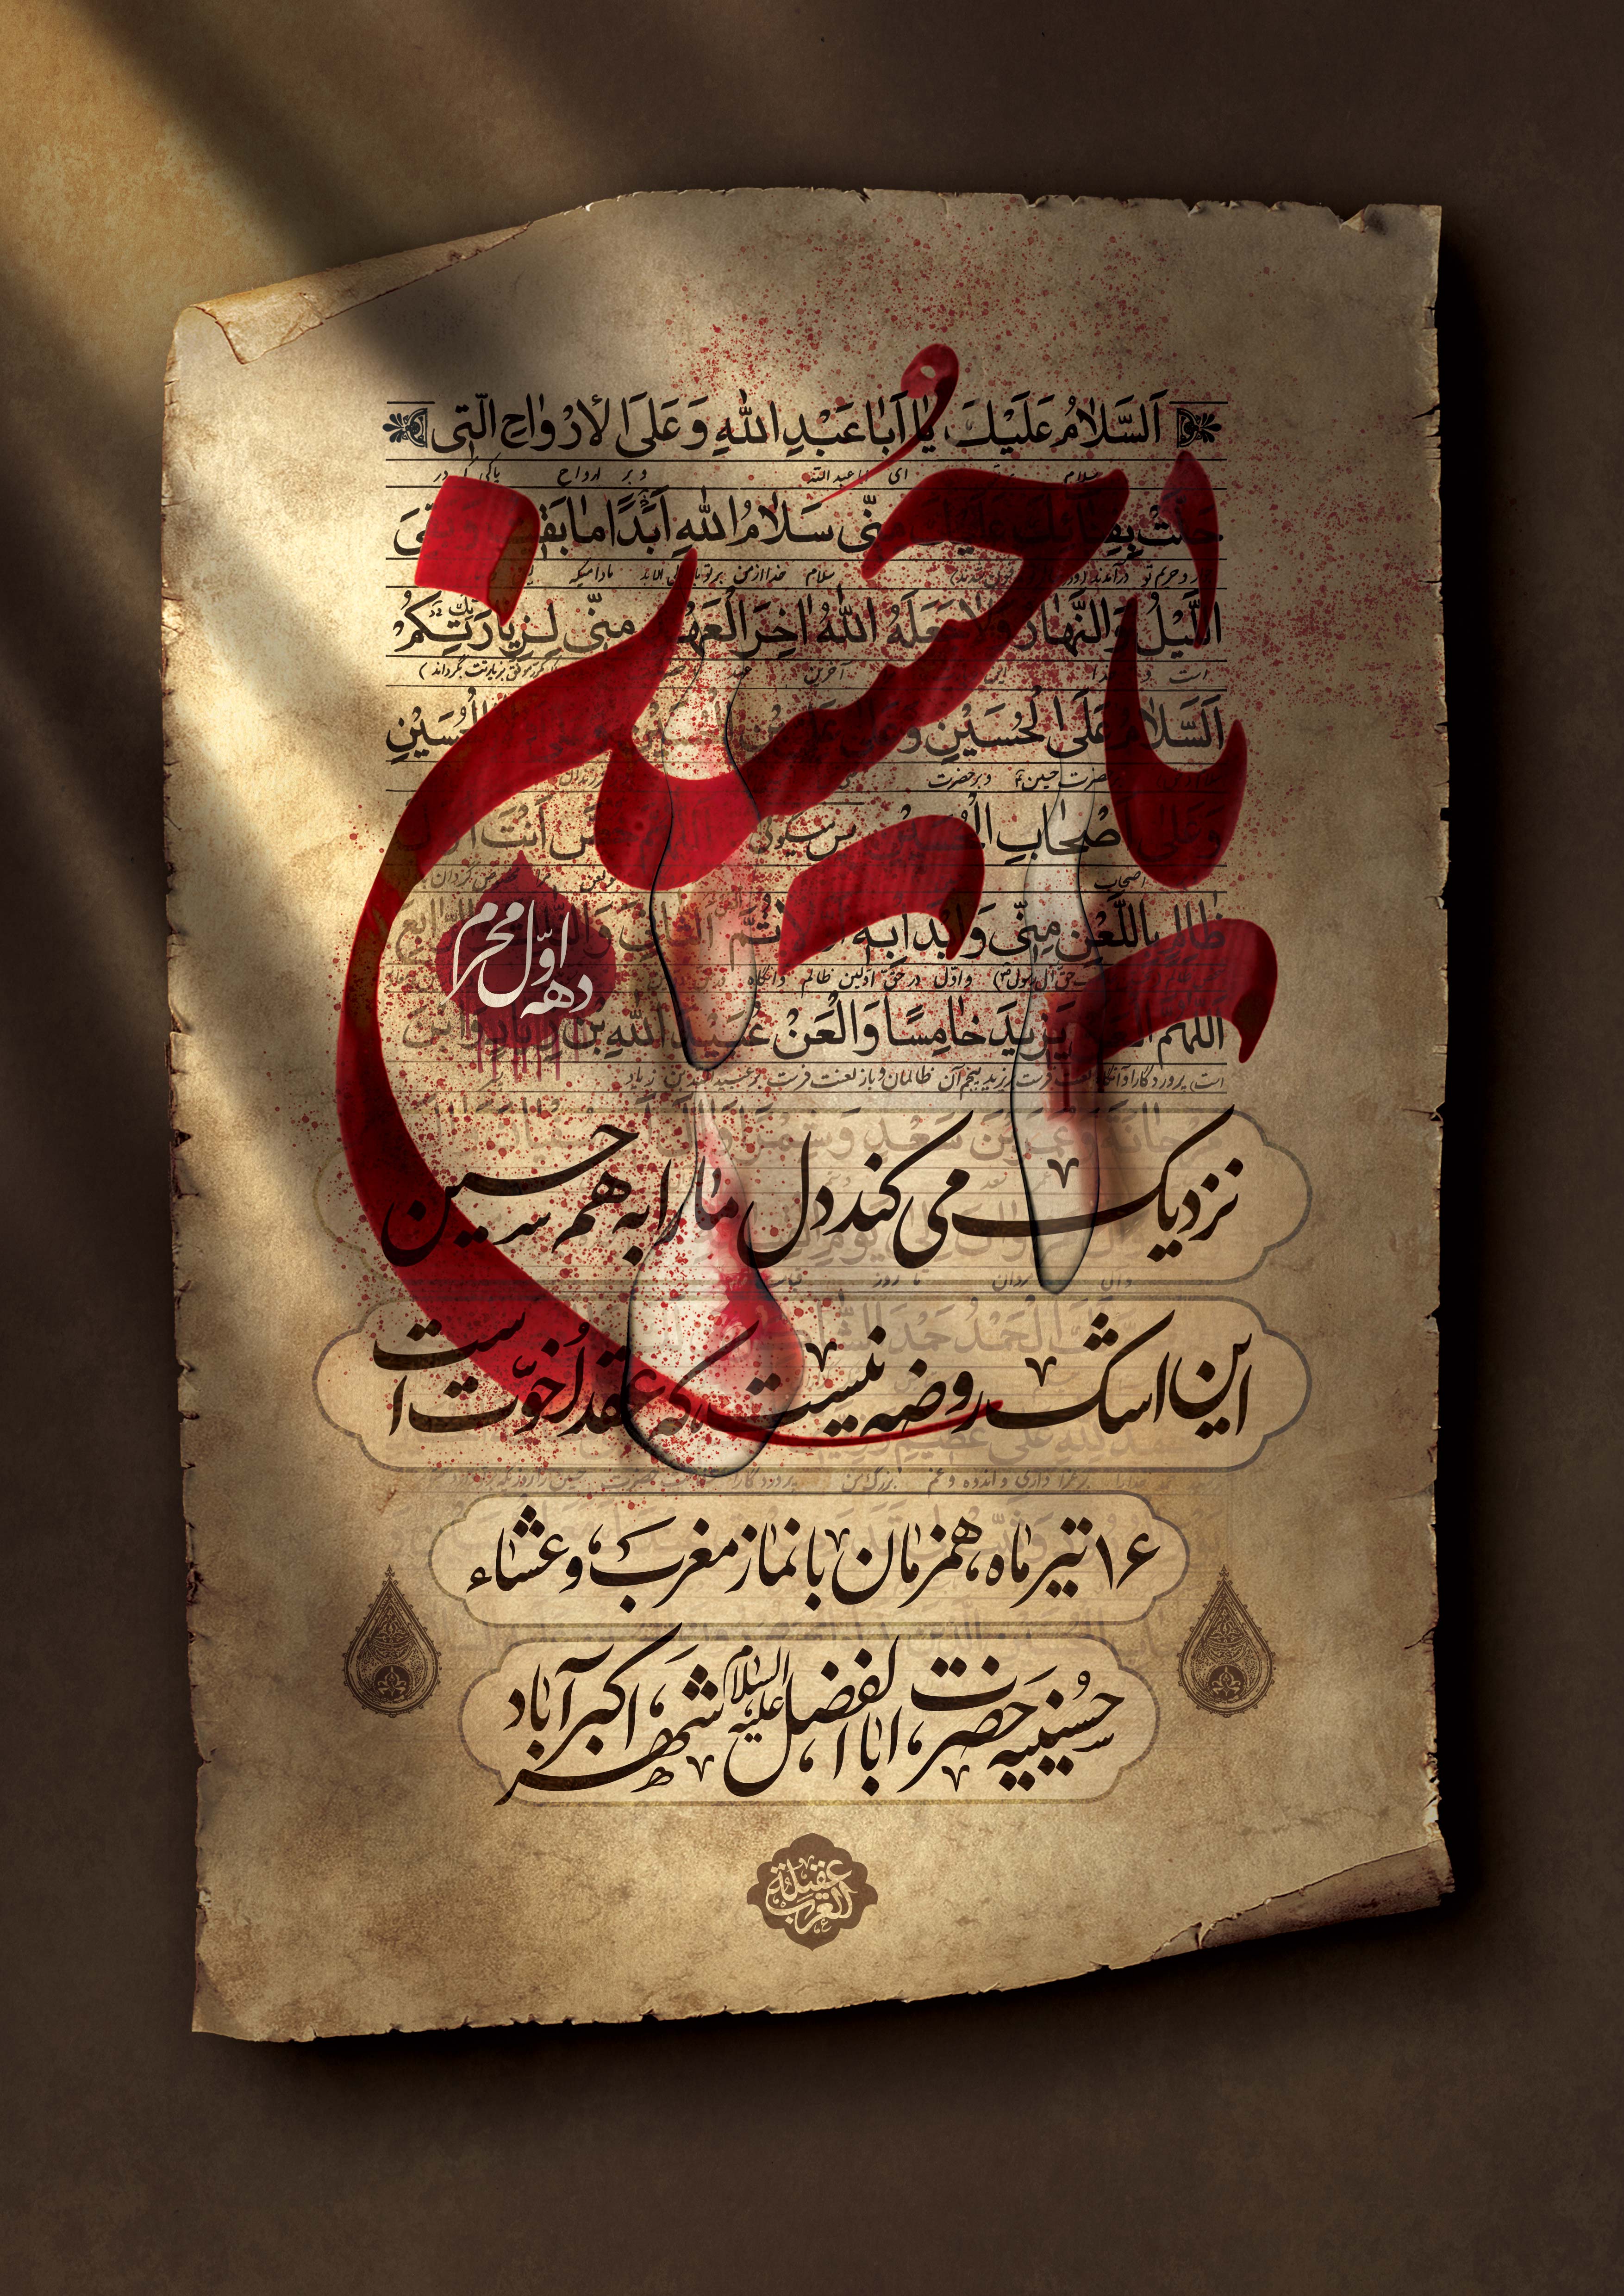 اَلسَّلامُ عَلَيْكَ يا اَبا عَبْدِاللهِ وَ عَلَى الأرْواحِ الَّتى
حَلَّتْ بِفِنائِكَ عَلَيْكَ مِنّى سَلامُ اللهِ اَبَدًا ما بَقيتُ وَ بَقِىَ
اللَّيْلُ وَالنَّهارُ وَلا جَعَلَهُ اللهُ اخِرَ الْعَهْدِ مِنّى لِزِيارَتِكُمْ
یا حسین
اَلسَّلامُ عَلَى الْحُسَيْنِ وَ عَلى عَلِىِّ بْنِ الْحُسَيْنِ وَ عَلى اَوْلادِ الْحُسَيْنِ
وَ عَلى اَصْحابِ الْحُسَيْنِ پس میگوئی اَللّهُمَّ خُصَّ اَنْتَ اَوَّلَ
ظالِمٍ بِاللَّعْنِ مِنّى وَابْدَأْ بِهِ اَوَّلاً ثُمَّ الثّانِىَ وَالثّالِثَ وَالرّابِعَ
دهه اوّل محرم
اَللّهُمَّ الْعَنْ يَزيدَ خامِسًا وَالْعَنْ عُبَيْدَاللهِ بْنَ زِيادٍ وَابْنَ
نزدیک می کند دل ما را به هم حسین
این اشک روضه نیست که عقد اُخوّت است
۱۶ تیرماه، همزمان با نماز مغرب و عشاء
حسینیه حضرت اباالفضل علیه السلام شهر اکبرآباد
عقیلة العرب